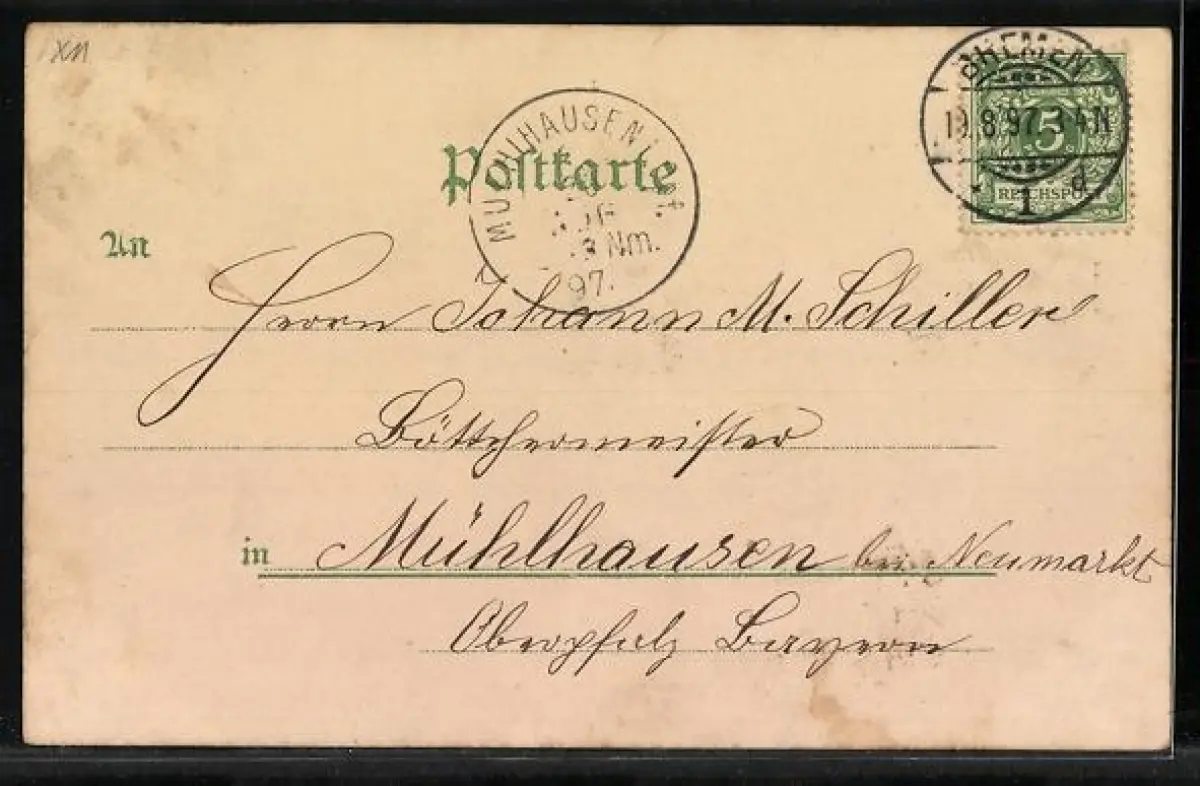 BREMEN
19.8.97. 3-4N
1 d
5
REICHSPOST
Postkarte
MÜHLHAUSEN
3 Nm.
97.
An
Herrn Johann M. Schiller
Böttchermeister
in Mühlhausen bei Neumarkt
Oberpfalz Bayern